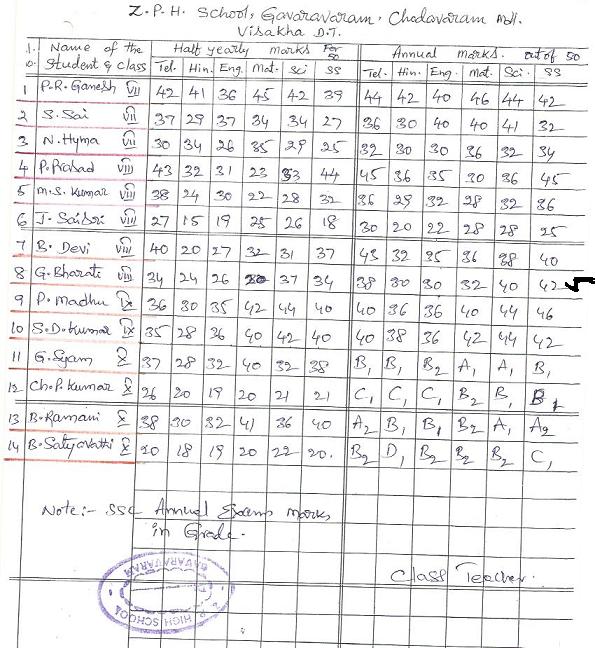 Z.P.H. School, Gavaravaram, Chodavaram Mdl.
Visakha D.T.
Name of the Student & Class Half yearly marks For 50 Annual marks. out of 50
Tel. Hin. Eng. Mat. Sci SS Tel. Hin. Eng. Mat. Sci. SS
1 P.R. Ganesh VII 42 41 36 45 42 39 44 42 40 46 44 42
2 S. Sai VII 37 29 37 34 34 27 36 30 40 40 41 32
3 N. Hyma VII 30 34 26 35 29 25 32 30 30 36 32 34
4 P. Prasad VIII 43 32 31 23 33 44 45 36 35 30 36 45
5 M.S. Kumar VIII 38 24 30 22 28 32 36 29 32 28 32 36
6 J. SaiSri VIII 27 15 19 25 26 18 30 20 22 28 28 25
7 B. Devi VIII 40 20 27 32 31 37 43 32 35 36 38 40
8 G. Bharati VIII 34 24 26 37 34 38 30 30 32 40 42
9 P. Madhu IX 36 30 35 42 44 40 40 36 36 40 44 46
10 S.D. Kumar IX 35 28 36 40 42 40 40 38 36 42 44 42
11 G. Syam X 37 28 32 40 32 38 B1 B1 B2 A1 A1 B1
12 Ch.P. Kumar X 26 20 19 20 21 21 C1 C1 C1 B2 B1 B1
13 B. Ramani X 38 30 32 41 36 40 A2 B1 B1 B2 A1 A2
14 B. Satyavathi X 20 18 19 20 22 20. B2 D1 B2 B2 B2 C1
Note:- SSC Annual Exams marks
in Grade.
Class Teacher.
GAVARAVARAM
HIGH SCHOOL